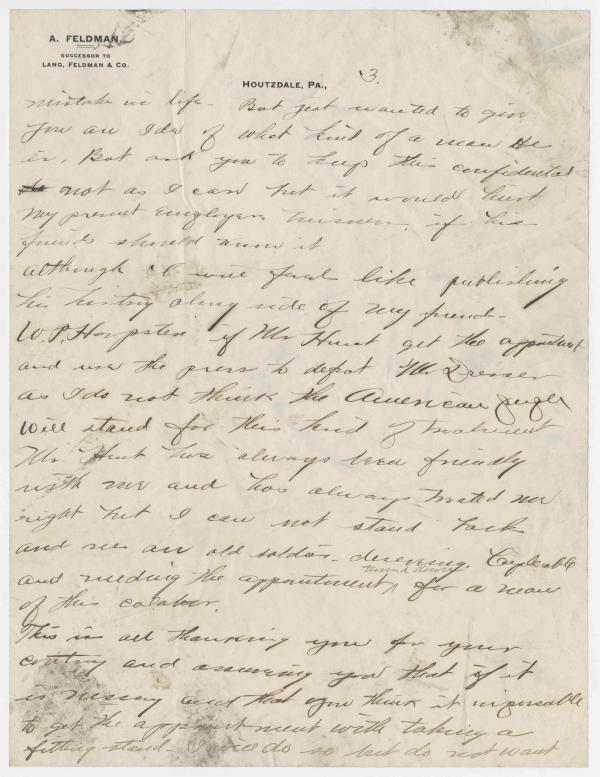 A. FELDMAN
SUCCESSOR TO
LANG, FELDMAN & CO.
HOUTZDALE, PA.,
3.
mistake in life. But just wanted to give
you an Ida of what kind of a man He
is. But ask you to keep this confidental
not as I care but it would hurt
my present Employers if his
friends should know it
although I will feel like publishing
his history along side of my friend
W.P. Hempster if Mr Hunt get the appointment
and use the press to defeat Mr Dresser
as I do not think the American people
will stand for this kind of treatment
Mr. Hunt has always been friendly
with me and has always treated me
right but I can not stand back
and see an old soldier deserving Capable
and needing the appointment turned down for a man
of this
This is all thanking you for your
and assuring you that if it
is and that you think it impossable
to get the appointment with taking a
fitting stand I will do so but do not want